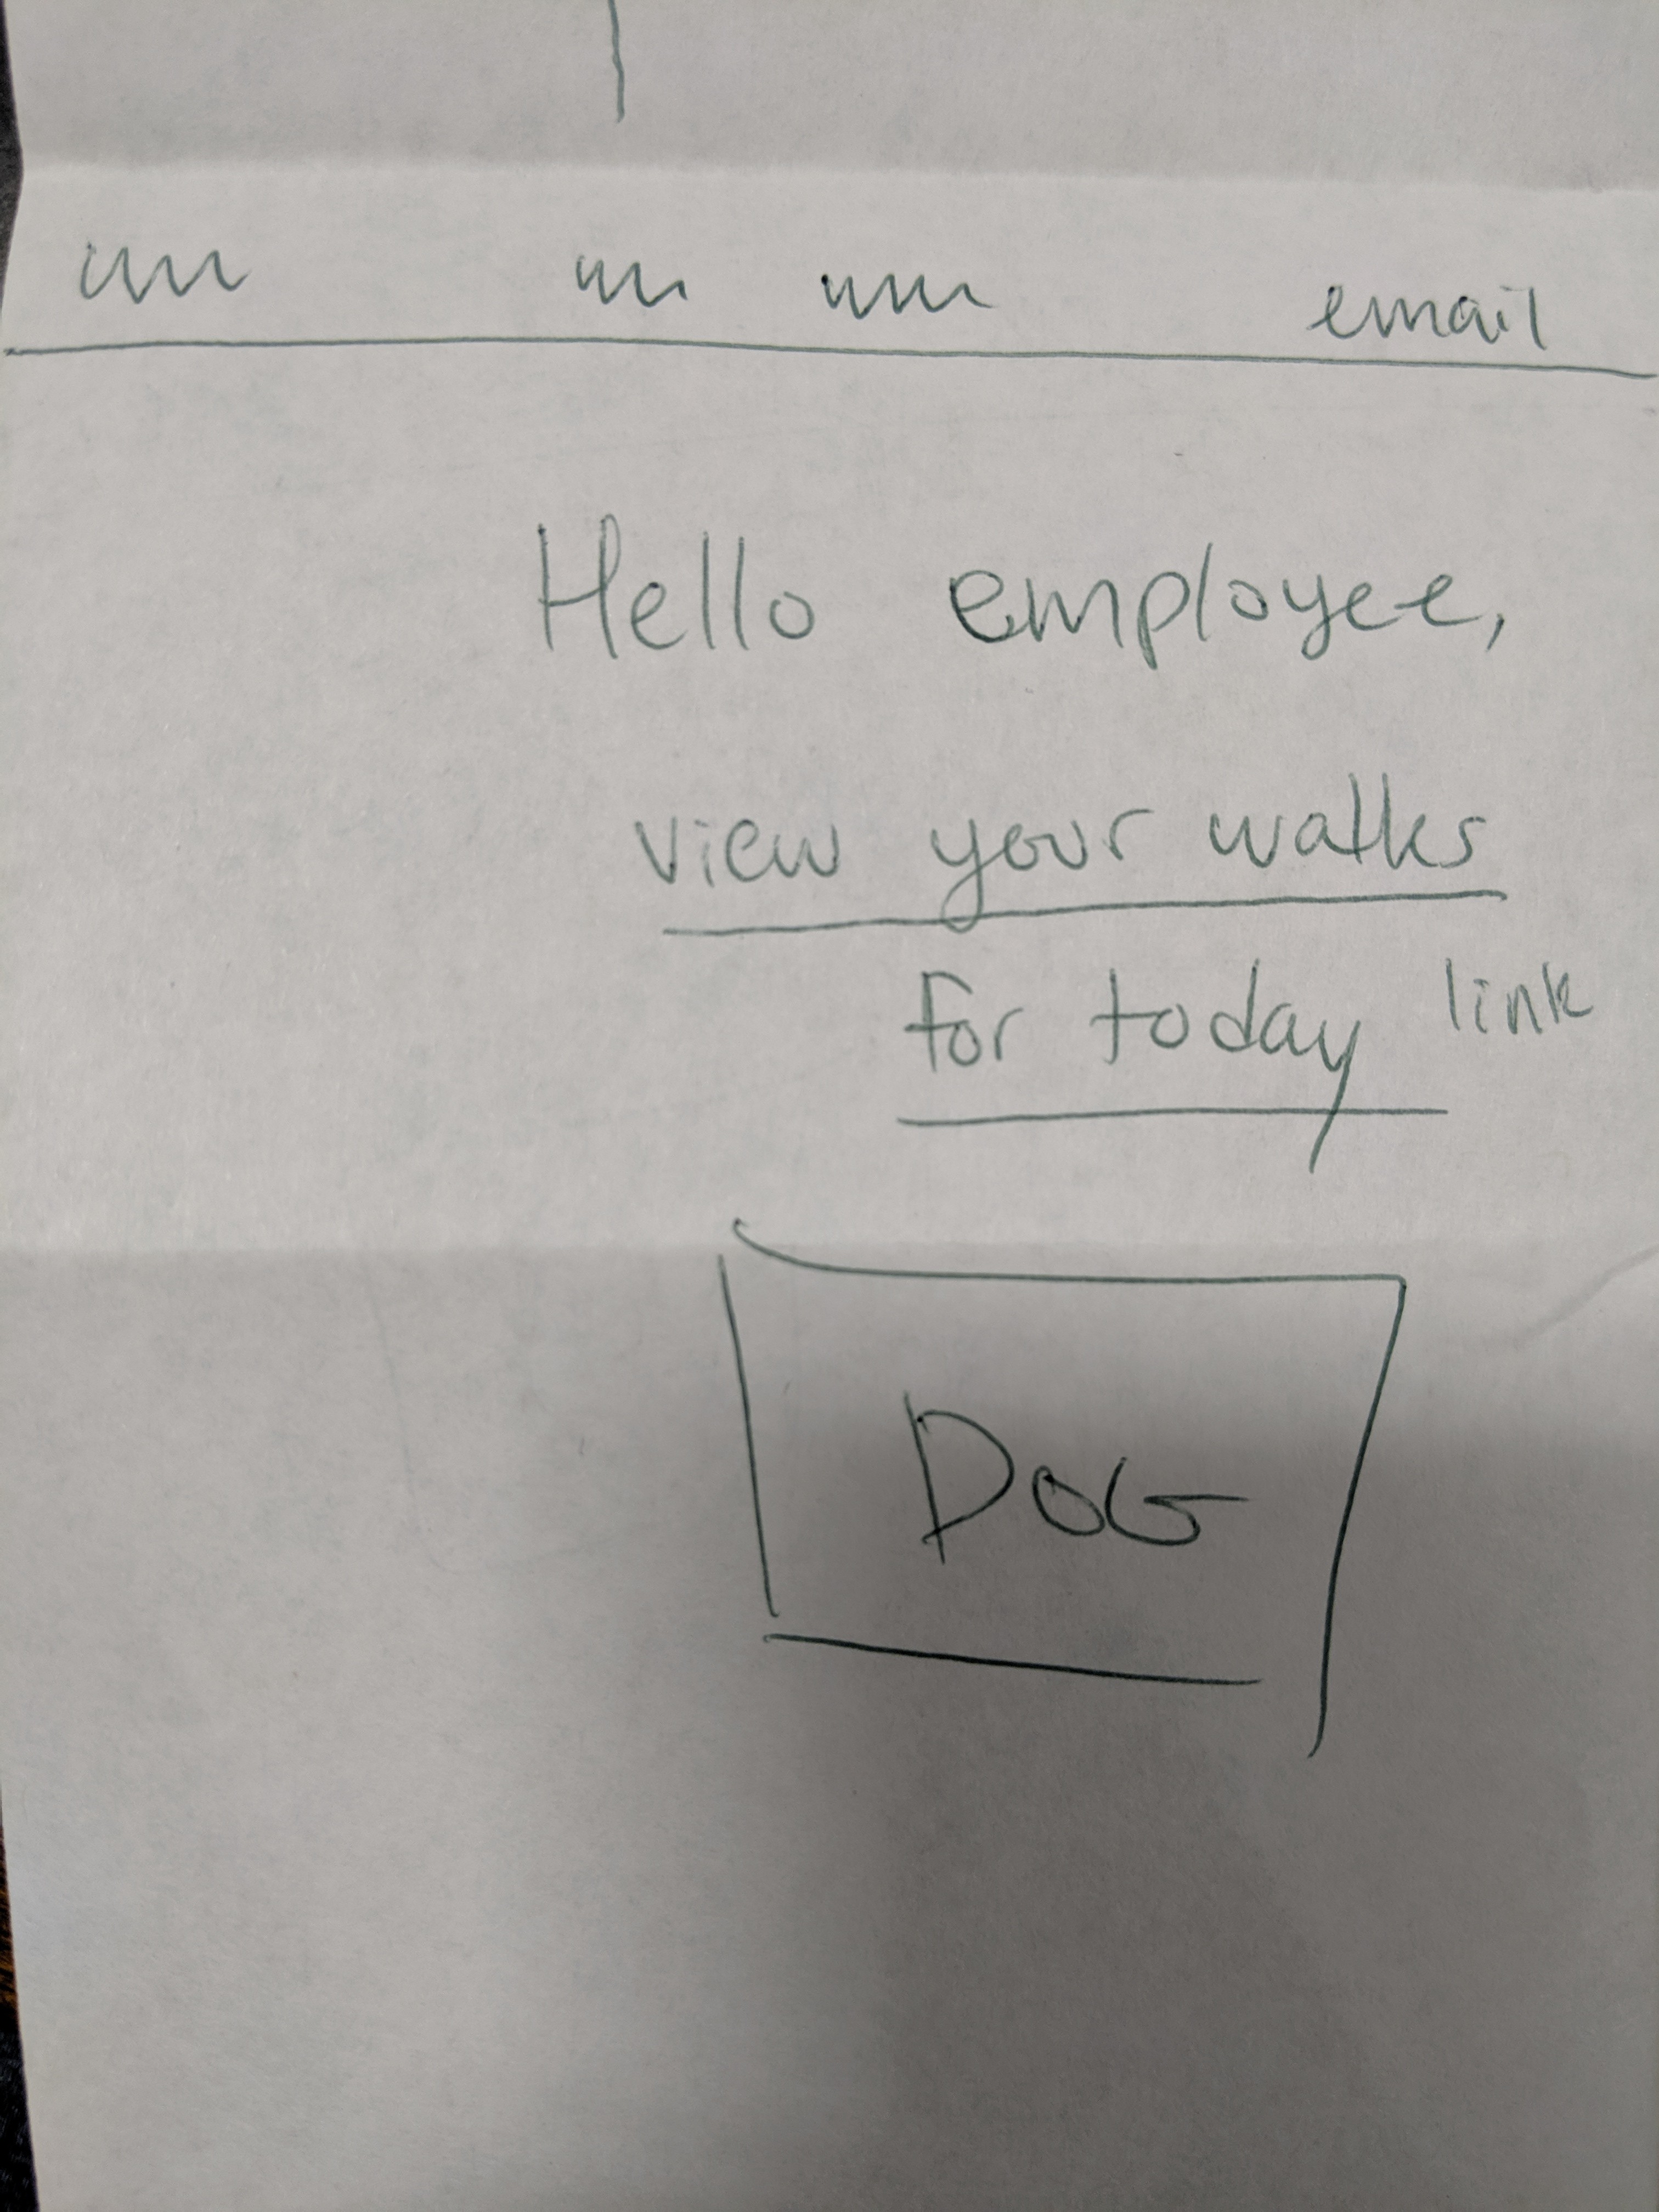 email
Hello employee,
view your walks
for today link
DOG